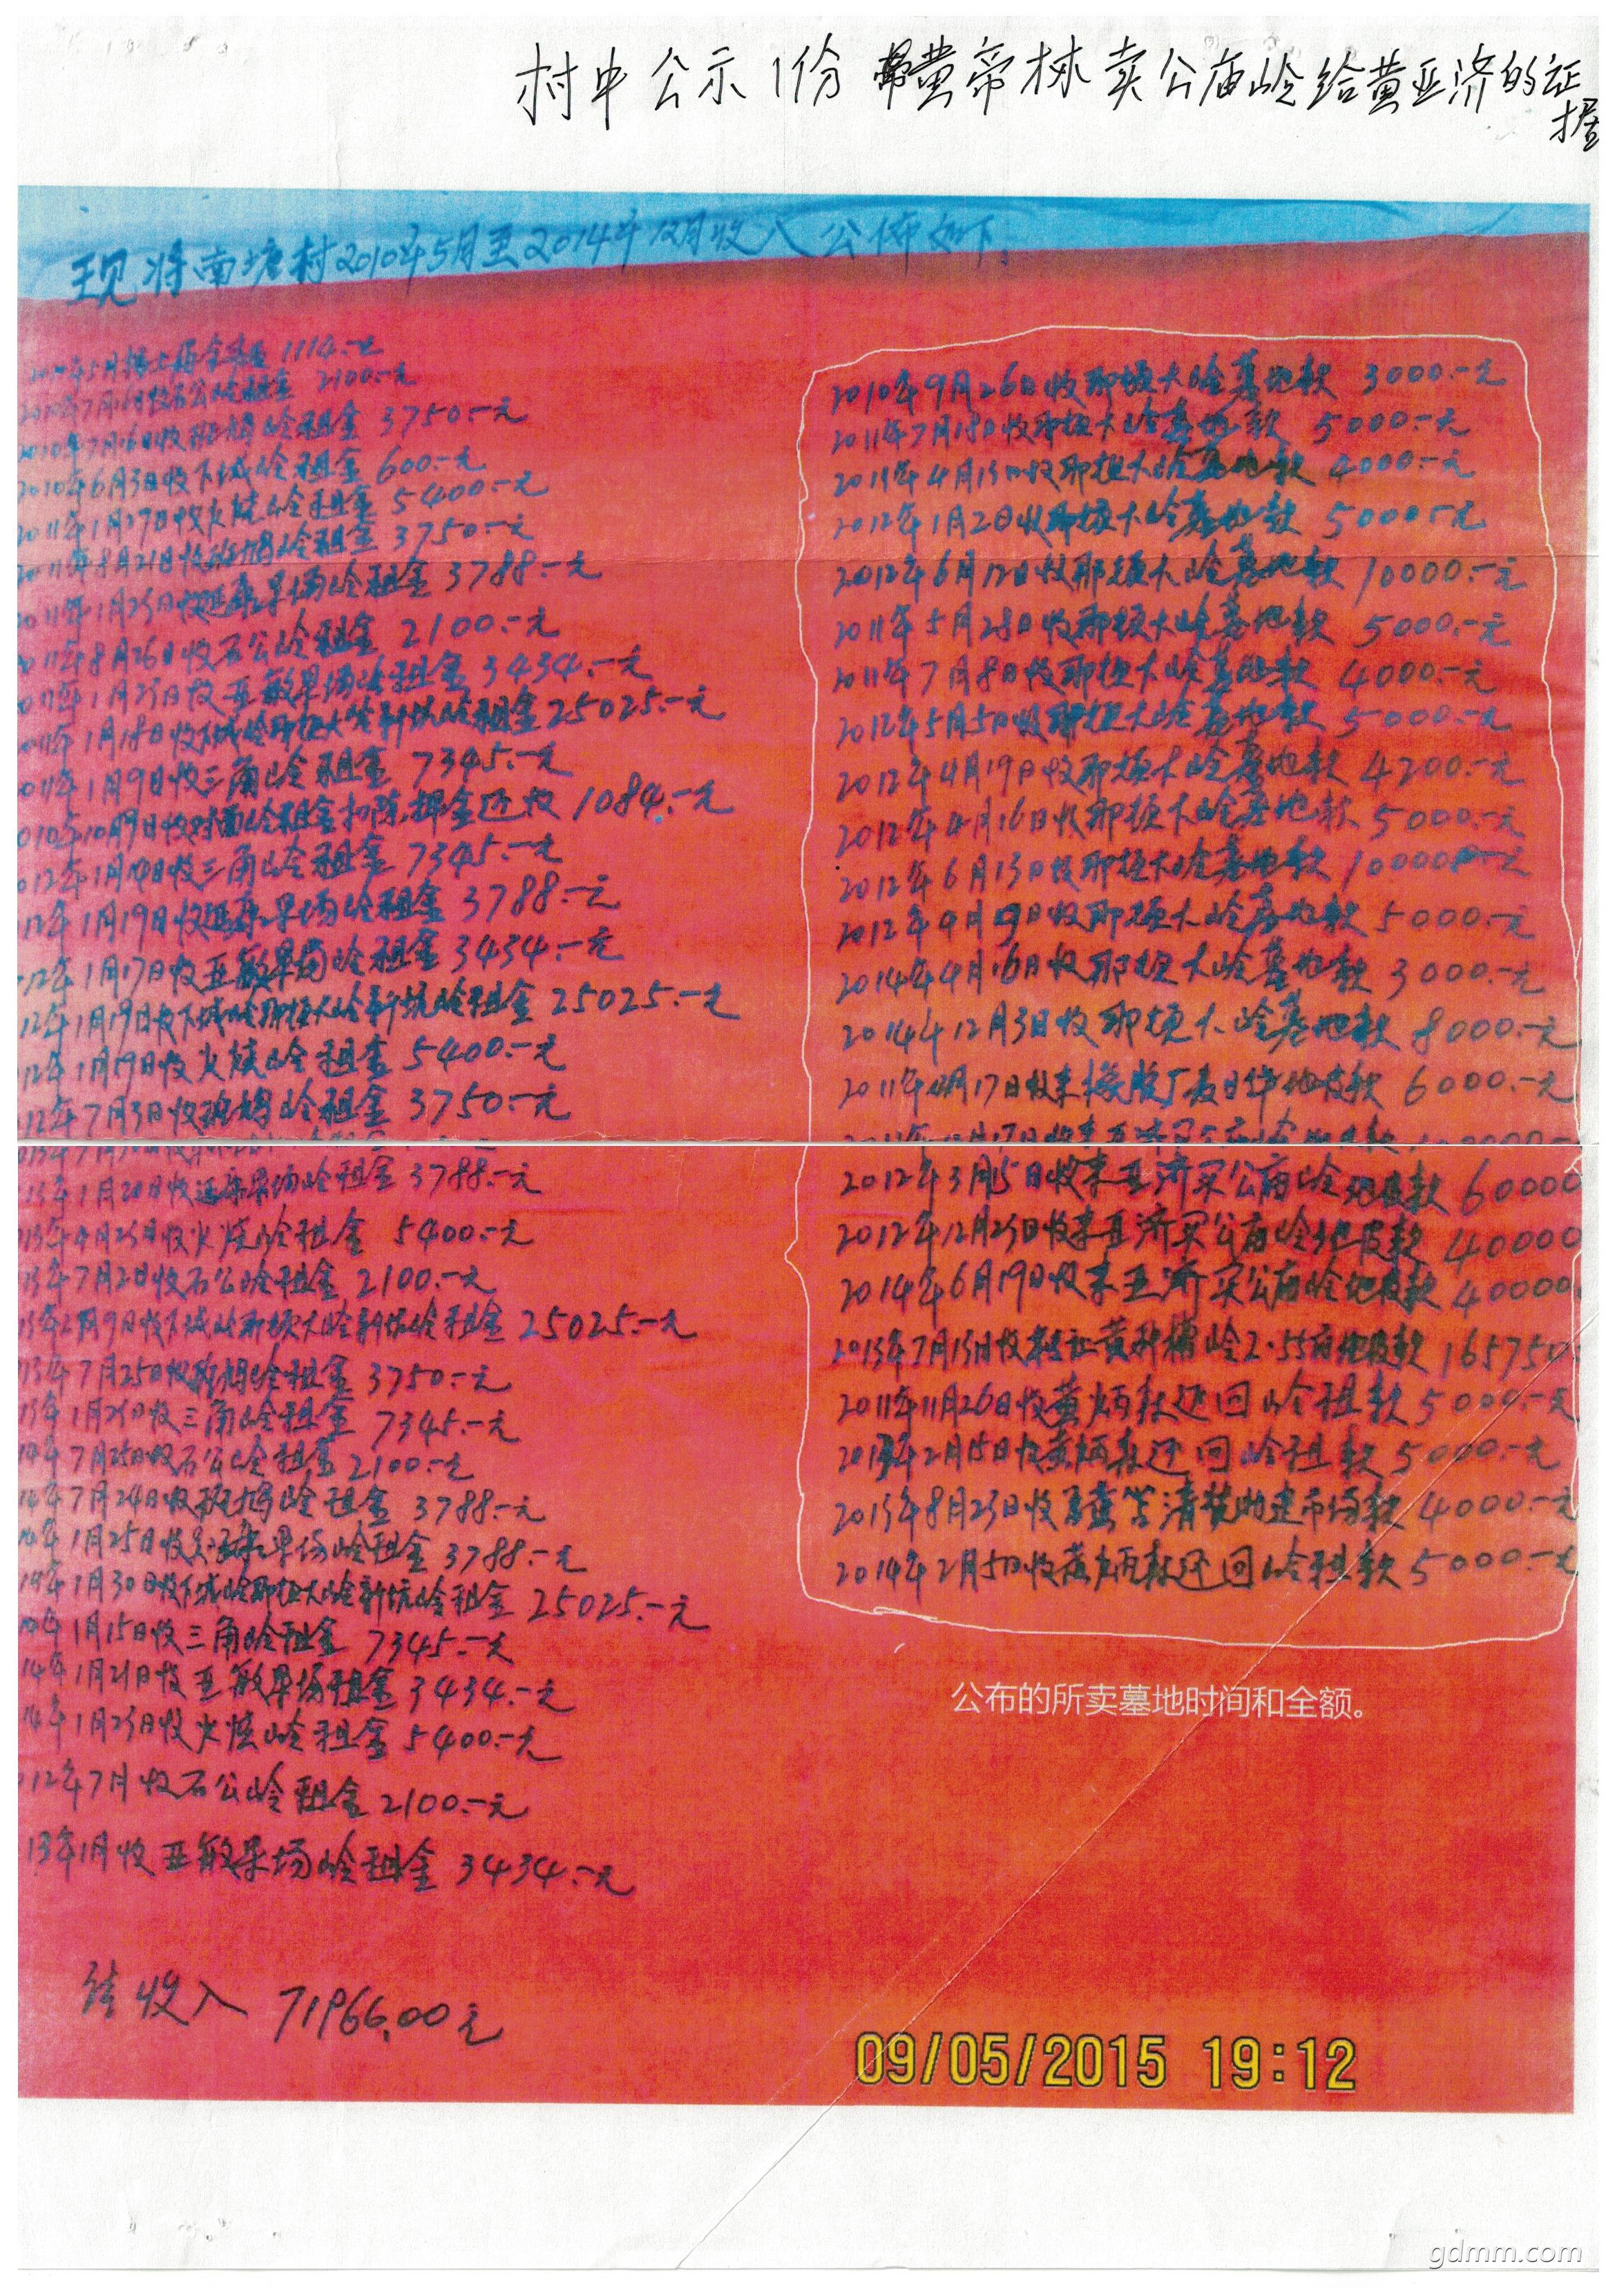 村中公示1份 黄帝林卖公庙岭给黄亚济的证
据
现将南塘村2010年5月至2014年12月收入公佈如下:
2010年5月 1114.-元
2010年7月16日收石公岭租金 2100.-元
2010年7月16日收班鸠岭租金 3750.-元
2010年6月3日收下城岭租金 600.-元
2011年1月27日收火烧岭租金 5400.-元
2011年8月21日收班鸠岭租金 3750.-元
2011年1月23日收延寿果场岭租金 3788.-元
011年8月26日收石公岭租金 2100.-元
011年1月23日收亚敏果场岭租金 3434.-元
011年1月18日收下城岭那顿大岭新坑岭租金 25025.-元
011年1月9日收三角岭租金 7345.-元
010年10月9日收 岭租金扣除押金还收 1084.-元
012年1月14日收三角岭租金 7345.-元
12年1月19日收 果场岭租金 3788.-元
12年1月17日收亚敏果场岭租金 3434.-元
12年1月19日收下城岭那顿大岭新坑岭租金 25025.-元
12年1月19日收火烧岭租金 5400.-元
12年7月3日收班鸠岭租金 3750.-元
13年1月20日收 果场岭租金 3788.-元
13年4月23日收火烧岭租金 5400.-元
13年7月2日收石公岭租金 2100.-元
13年2月9日收下城岭那顿大岭新坑岭租金 25025.-元
13年7月25日收班鸠岭租金 3750.-元
13年1月21日收三角岭租金 7345.-元
14年7月25日收石公岭租金 2100.-元
14年7月24日收班鸠岭租金 3788.-元
14年1月25日收 果场岭租金 3788.-元
14年1月30日收下城岭那顿大岭新坑岭租金 25025.-元
14年1月15日收三角岭租金 7345.-元
14年1月21日收亚敏果场租金 3434.-元
14年1月23日收火烧岭租金 5400.-元
12年7月收石公岭租金 2100.-元
13年1月收亚敏果场岭租金 3434.-元
结收入 71966.00元
2010年9月26日收那顿大岭墓地款 3000.-元
2011年7月18日收那顿大岭墓地款 5000.-元
2011年4月13日收那顿大岭墓地款 4000.-元
2012年1月2日收那顿大岭墓地款 5000元
2012年6月12日收那顿大岭墓地款 10000.-元
2011年5月28日收那顿大岭墓地款 5000.-元
2011年7月8日收那顿大岭墓地款 4000.-元
2012年5月5日收那顿大岭墓地款 5000.-元
2012年4月19日收那顿大岭墓地款 4200.-元
2012年4月16日收那顿大岭墓地款 5000.-元
2012年6月13日收那顿大岭墓地款 10000.-元
2012年9月9日收那顿大岭墓地款 5000.-元
2014年4月16日收那顿大岭墓地款 3000.-元
2014年12月3日收那顿大岭墓地款 8000.-元
2011年 月17日收来橡胶厂 地皮款 6000.-元
2012年3月5日收来亚济买公庙岭地皮款 60000
2012年12月23日收来亚济买公庙岭地皮款 40000
2014年6月19日收来亚济买公庙岭地皮款 40000
2013年7月13日收 岭2.55亩地皮款 165750
2011年11月26日收黄炳 还回岭租款 5000.-元
2013年2月15日收黄炳 还回岭租款 5000.-元
2013年8月23日收 建市场款 4000.-元
2014年2月5日收黄炳 还回岭租款 5000.-元
公布的所卖墓地时间和全额。
09/05/2015 19:12
gdmm.com